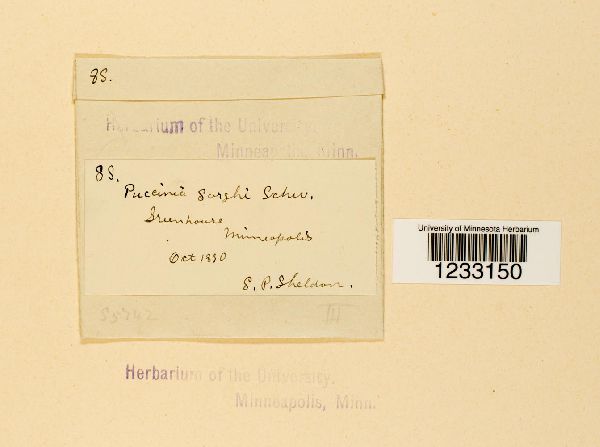 85.
Herbarium of the University.
Minneapolis, Minn.
85.
Puccinia sorghi Schw.
Greenhouse
Minneapolis
Oct 1890
E. P. Sheldon.
S5742
III
University of Minnesota Herbarium
1233150
Herbarium of the University.
Minneapolis, Minn.